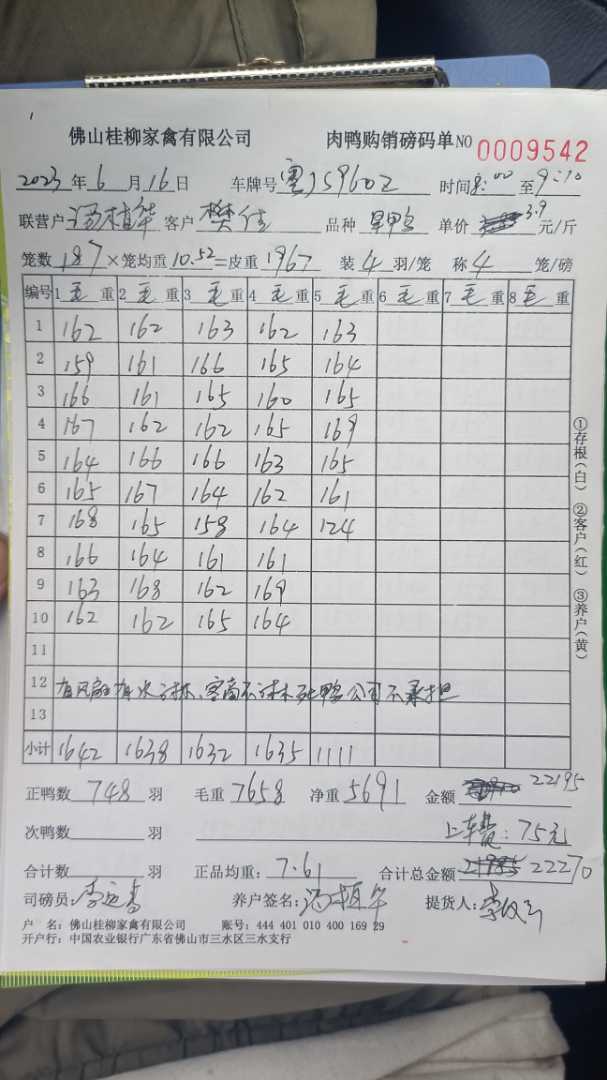 佛山桂柳家禽有限公司 肉鸭购销磅码单 NO 0009542
2023年6月16日 车牌号 粤J5960Z 时间8:00至9:10
联营户 客户 樊佳 品种 单价 3.9 元/斤
笼数187×笼均重10.52=皮重1967 装4羽/笼 称4笼/磅
编号 1毛重 2毛重 3毛重 4毛重 5毛重 6毛重 7毛重 8毛重
1 162 162 163 162 163
2 159 161 166 165 164
3 166 161 165 160 165
4 167 162 162 165 169
5 164 166 166 163 165
6 165 167 164 162 161
7 168 165 158 164 124
8 166 164 161 161
9 163 168 162 169
10 162 162 165 164
11
12 死鸭公司不承担
13
小计 1642 1638 1632 1635 1111
正鸭数748羽 毛重7658 净重5691 金额 22195
次鸭数 羽 上车费:75元
合计数 羽 正品均重:7.61 合计总金额 22270
司磅员: 养户签名: 提货人:
户 名:佛山桂柳家禽有限公司 账号:444 401 010 400 169 29
开户行:中国农业银行广东省佛山市三水区三水支行
①存根(白) ②客户(红) ③养户(黄)